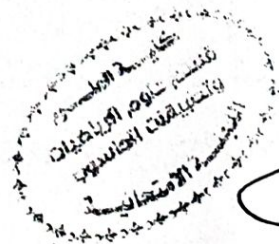 كلية العلوم
قسم علوم الرياضيات
والتطبيقات الحاسوب
اللجنة الامتحانية